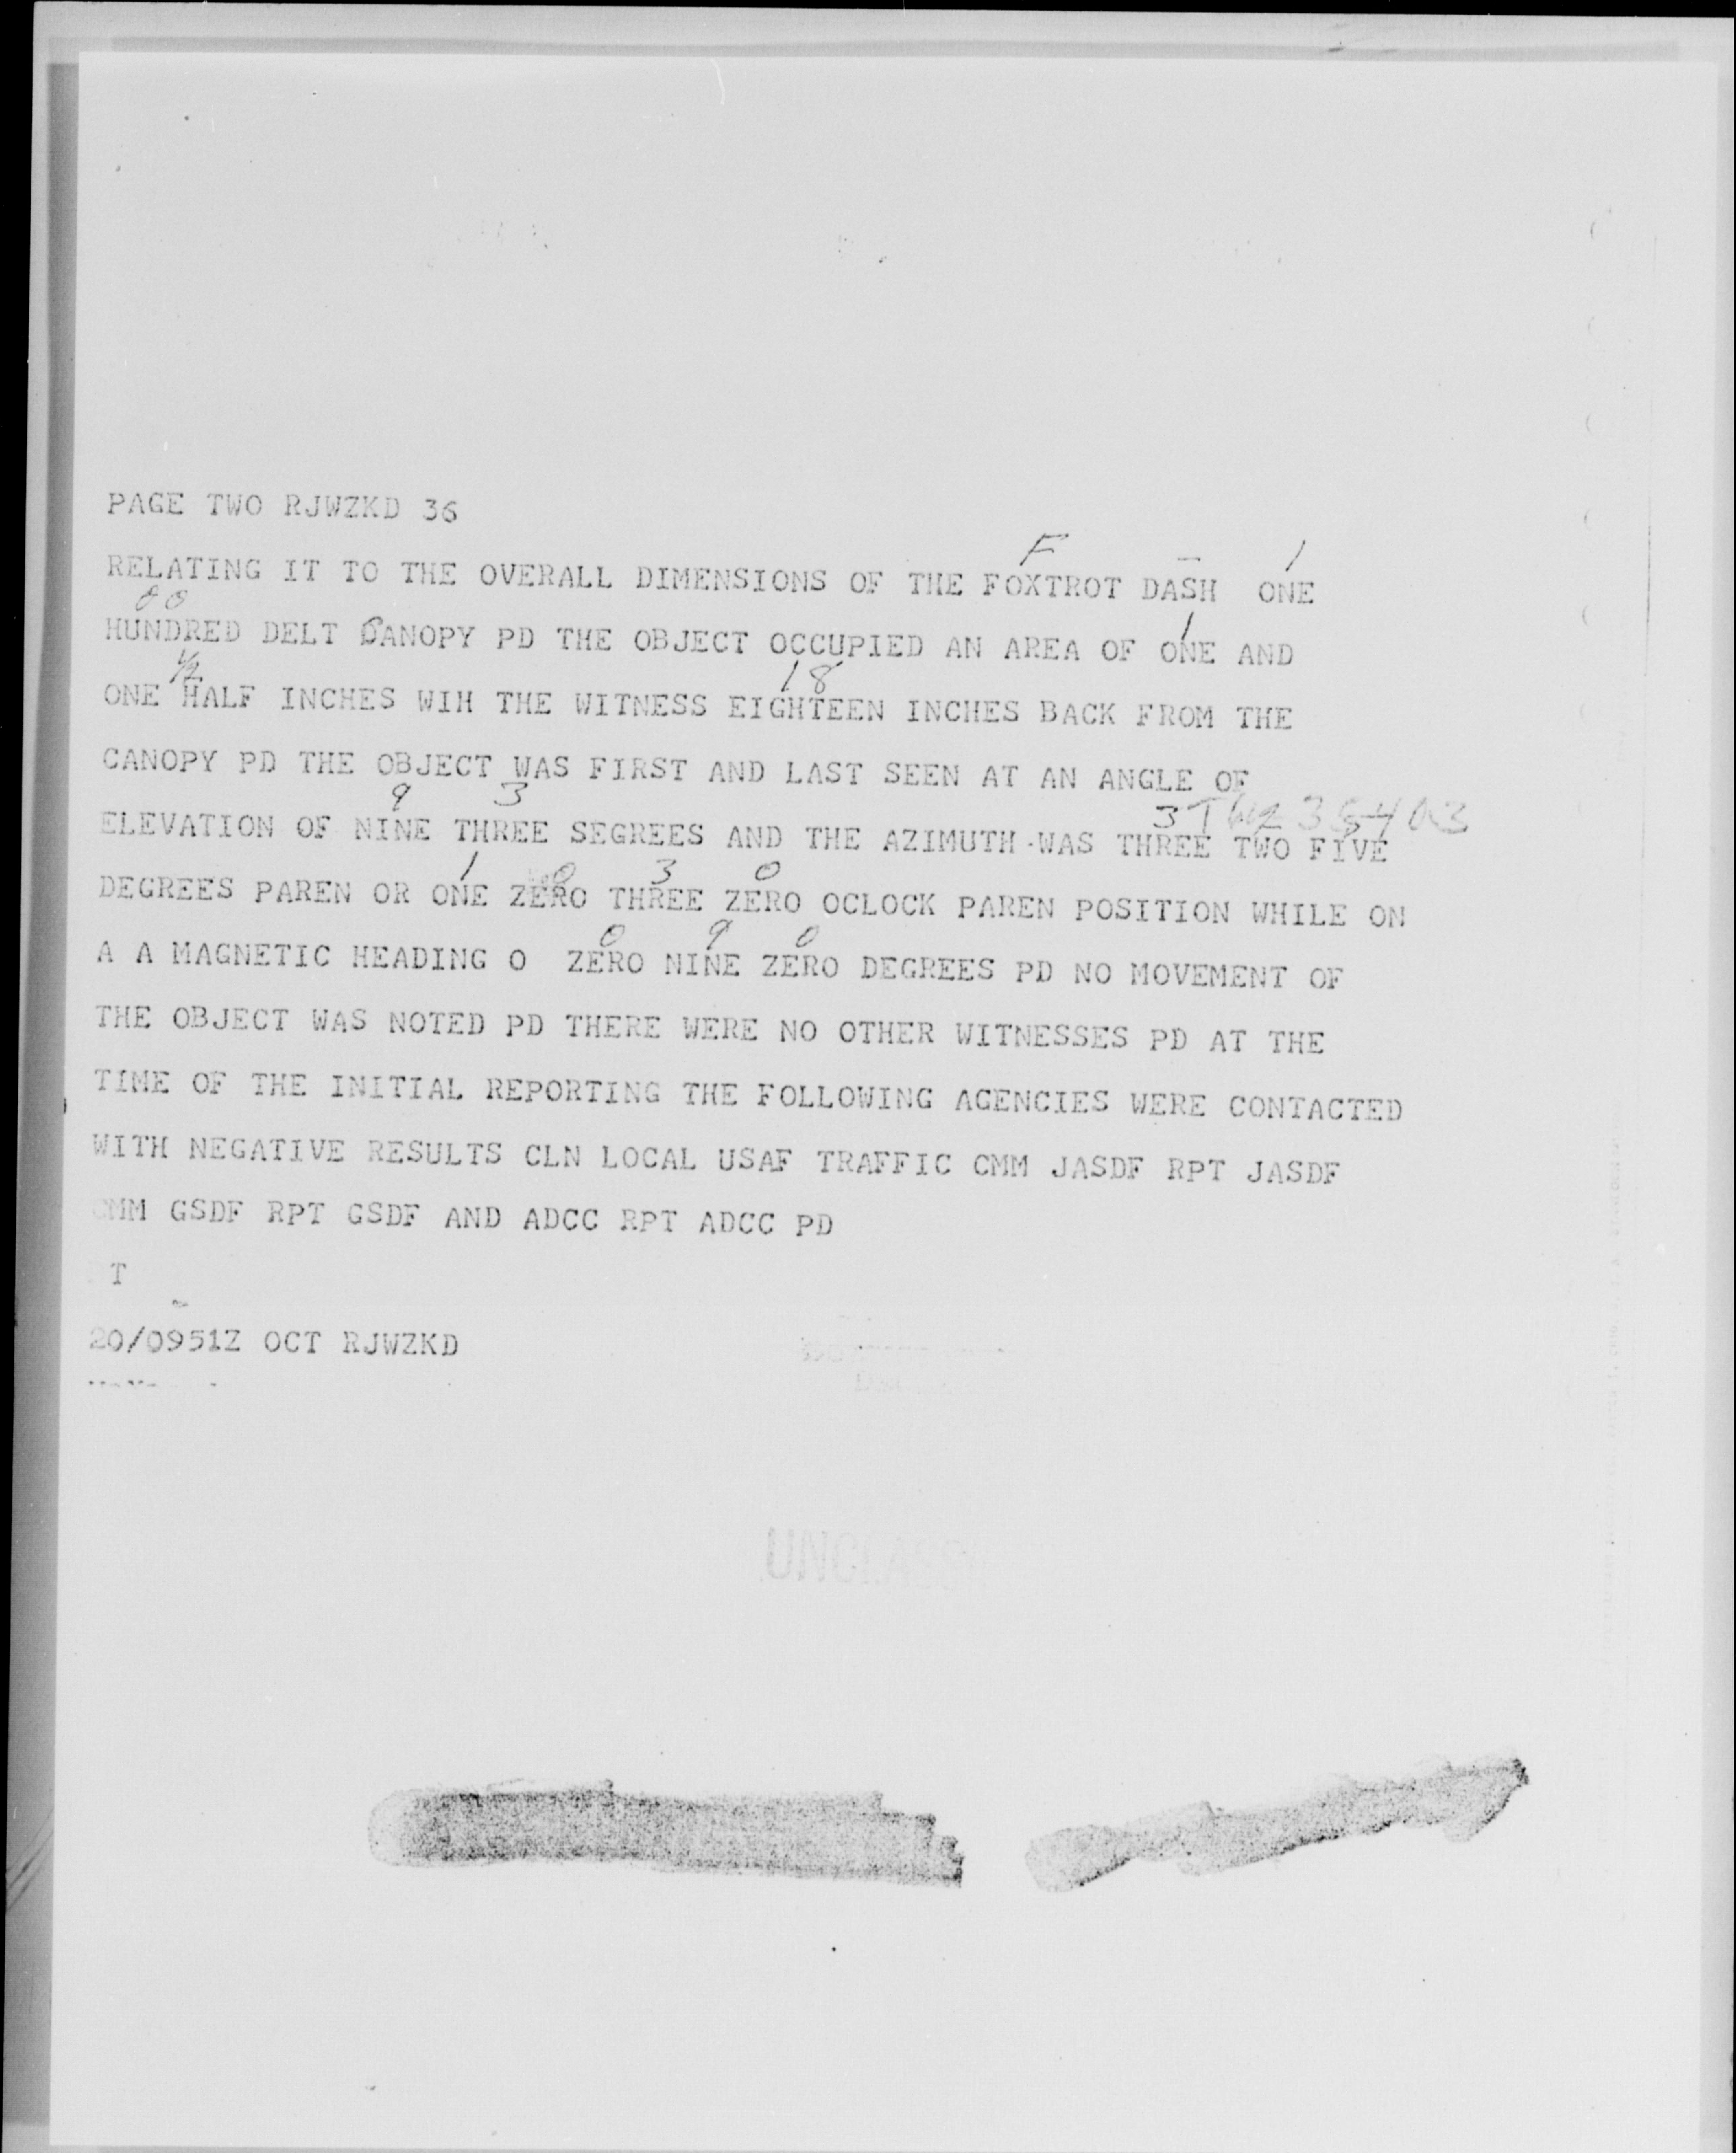 PAGE TWO RJWZKD 36
F – 1
RELATING IT TO THE OVERALL DIMENSIONS OF THE FOXTROT DASH ONE
00 1
HUNDRED DELT CANOPY PD THE OBJECT OCCUPIED AN AREA OF ONE AND
1/2 18
ONE HALF INCHES WIH THE WITNESS EIGHTEEN INCHES BACK FROM THE
CANOPY PD THE OBJECT WAS FIRST AND LAST SEEN AT AN ANGLE OF
9 3 3
ELEVATION OF NINE THREE SEGREES AND THE AZIMUTH WAS THREE TWO FIVE
1 0 3 0
DEGREES PAREN OR ONE ZERO THREE ZERO OCLOCK PAREN POSITION WHILE ON
0 9 0
A A MAGNETIC HEADING O ZERO NINE ZERO DEGREES PD NO MOVEMENT OF
THE OBJECT WAS NOTED PD THERE WERE NO OTHER WITNESSES PD AT THE
TIME OF THE INITIAL REPORTING THE FOLLOWING AGENCIES WERE CONTACTED
WITH NEGATIVE RESULTS CLN LOCAL USAF TRAFFIC CMM JASDF RPT JASDF
CMM GSDF RPT GSDF AND ADCC RPT ADCC PD
T
20/0951Z OCT RJWZKD